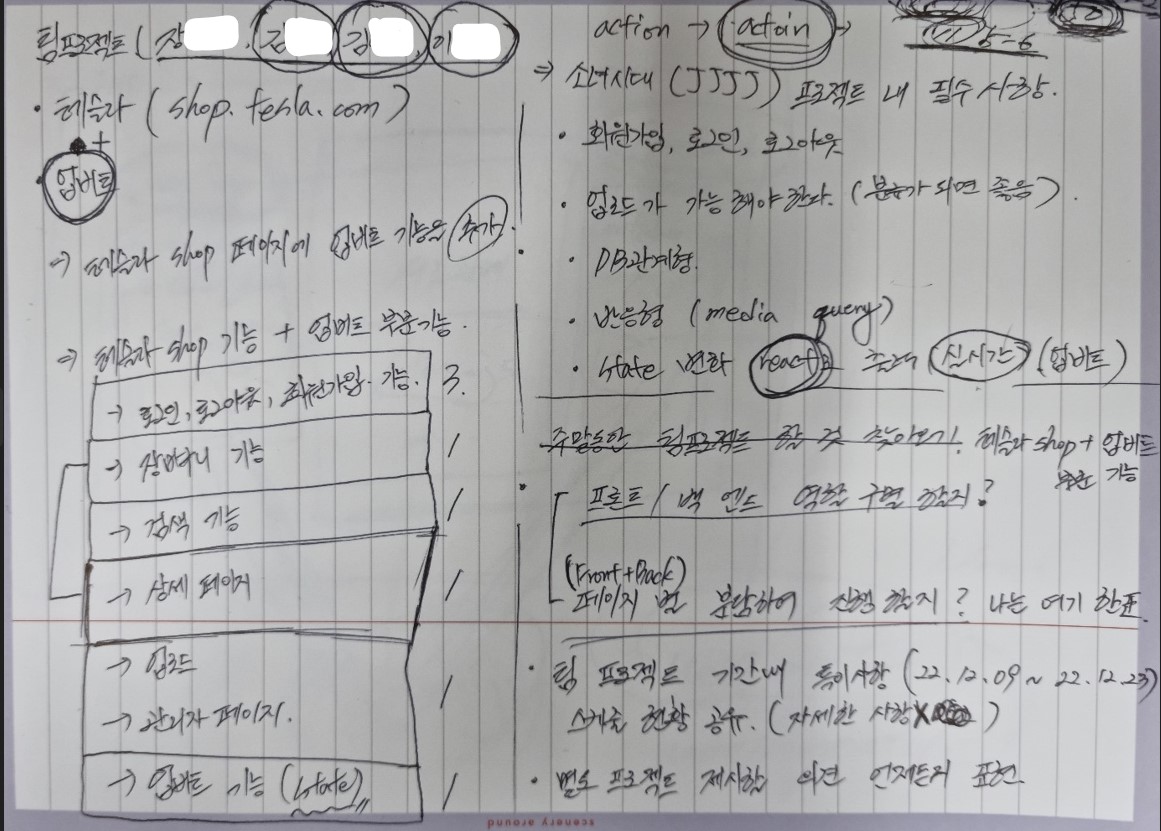 팀프로젝트 (장 , 김 , 김 , 이 )
· 테슬라 (shop.tesla.com)
+
· 업비트
→ 테슬라 shop 페이지에 업비트 기능을 추가.
⇒ 테슬라 shop 기능 + 업비트 부분기능.
→ 로그인, 로그아웃, 회원가입. 기능. 3.
→ 장바구니 기능 1
→ 검색 기능 1
→ 상세 페이지 1
→ 업로드
→ 관리자 페이지. 1
→ 업비트 기능 (state) 1
action → actoin →
5-6
⇒ 소녀시대 (JJJJ) 프로젝트 내 필수사항.
· 회원가입, 로그인, 로그아웃
· 업로드가 가능해야한다. (분류가 되면 좋음).
· DB관계형.
· 반응형 (media query)
· state 변화 react 실시간 (업비트)
주말동안 팀프로젝트 할 것 찾아보기! 테슬라 shop + 업비트
부분 기능
프론트 / 백 엔드 역할 구현 할지?
(Front+Back)
페이지 별 분담하여 진행 할지? 나는 여기 한표.
· 팀 프로젝트 기간내 특이사항 (22.12.09 ~ 22.12.23)
스케줄 현황 공유. (자세한 사항X )
· 별도 프로젝트 제시할 의견 언제든지 표현
scenery around